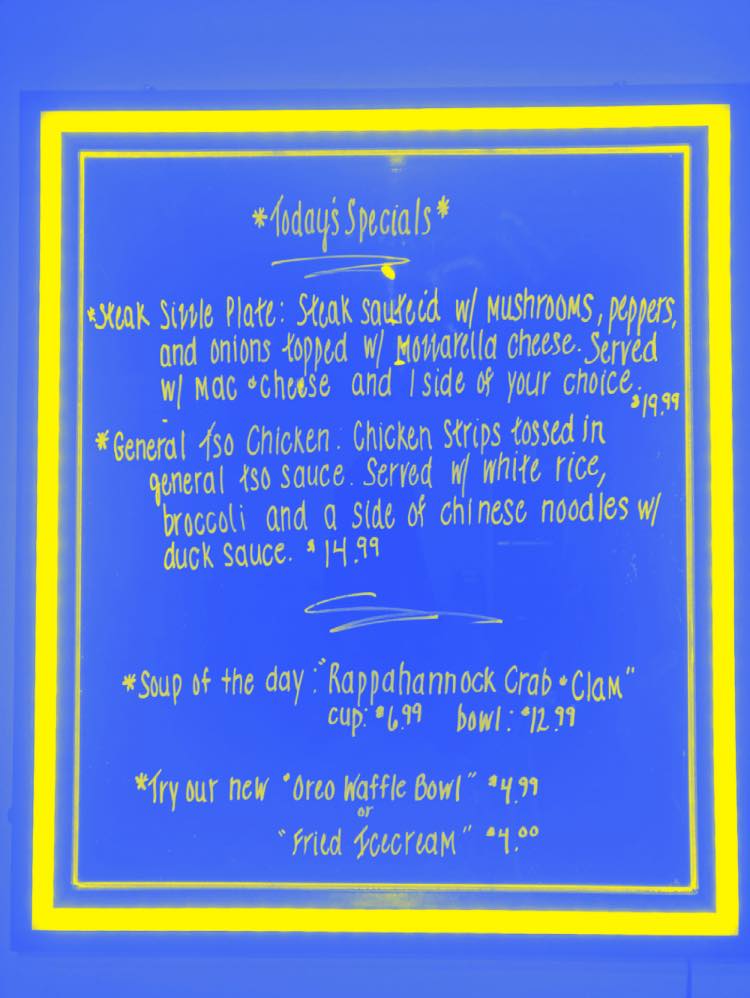 *Today's Specials*
*Steak Sizzle Plate: Steak sauteéd w/ Mushrooms, peppers,
and onions topped w/ Mozzarella cheese. Served
w/ Mac & cheese and 1 side of your choice. $19.99
*General Tso Chicken: Chicken Strips tossed in
general tso sauce. Served w/ white rice,
broccoli and a side of chinese noodles w/
duck sauce. $14.99
*Soup of the day: "Rappahannock Crab & Clam"
cup: $6.99 bowl: $12.99
*Try our new "Oreo Waffle Bowl" $4.99
or
"Fried Icecream" $4.00